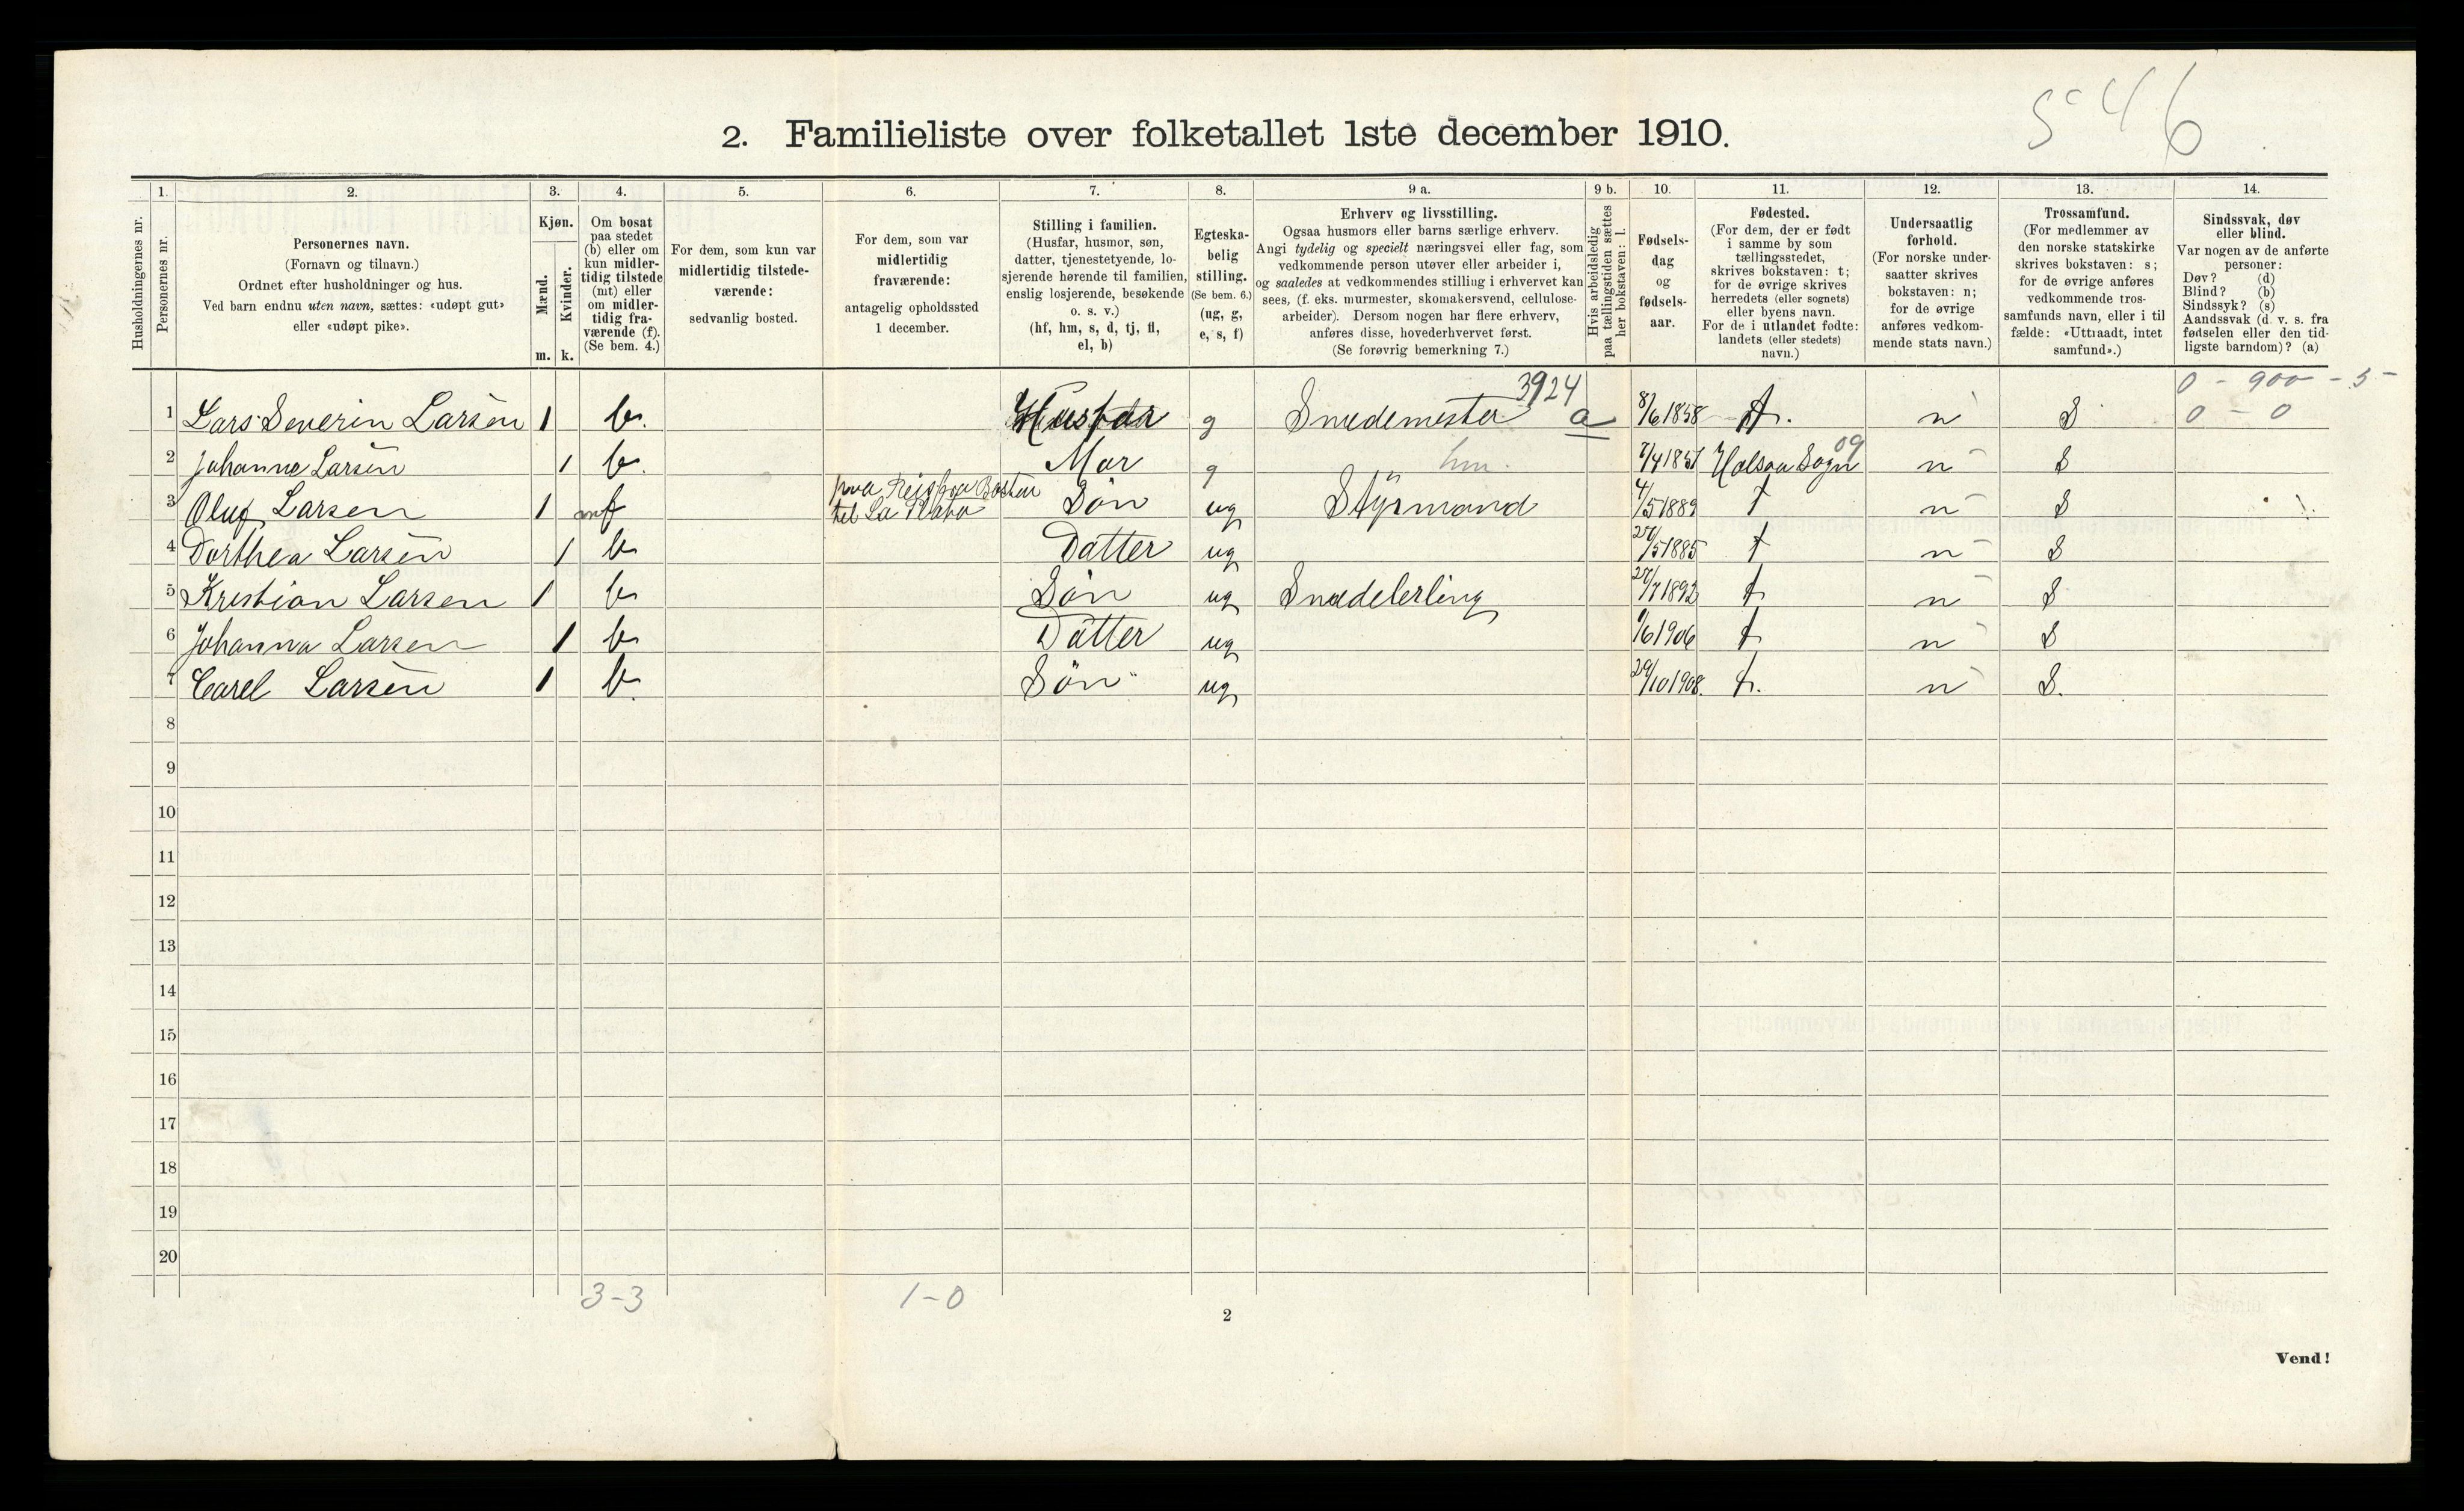 5 46
2. Familieliste over folketallet 1ste december 1910.
1. 2. 3. 4. 5. 6. 7. 8. 9 a. 9 b. 10. 11. 12. 13. 14.
Husholdningernes nr.
Personernes nr.
Personernes navn.
(Fornavn og tilnavn.)
Ordnet efter husholdninger og hus.
Ved barn endnu uten navn, sættes: «udøpt gut»
eller «udøpt pike».
Kjøn.
Mænd.
Kvinder.
m. k.
Om bosat
paa stedet
(b) eller om
kun midler-
tidig tilstede
(mt) eller
om midler-
tidig fra-
værende (f).
(Se bem. 4.)
For dem, som kun var
midlertidig tilstede-
værende:
sedvanlig bosted.
For dem, som var
midlertidig
fraværende:
antagelig opholdssted
1 december.
Stilling i familien.
(Husfar, husmor, søn,
datter, tjenestetyende, lo-
sjerende hørende til familien,
enslig losjerende, besøkende
o. s. v.)
(hf, hm, s, d, tj, fl,
el, b)
Egteska-
belig
stilling.
(Se bem. 6.)
(ug, g,
e, s, f)
Erhverv og livsstilling.
Ogsaa husmors eller barns særlige erhverv.
Angi tydelig og specielt næringsvei eller fag, som
vedkommende person utøver eller arbeider i,
og saaledes at vedkommendes stilling i erhvervet kan
sees, (f. eks. murmester, skomakersvend, cellulose-
arbeider). Dersom nogen har flere erhverv,
anføres disse, hovederhvervet først.
(Se forøvrig bemerkning 7.)
Hvis arbeidsledig
paa tællingstiden sættes
her bokstaven: l.
Fødsels-
dag
og
fødsels-
aar.
Fødested.
(For dem, der er født
i samme by som
tællingsstedet,
skrives bokstaven: t;
for de øvrige skrives
herredets (eller sognets)
eller byens navn.
For de i utlandet fødte:
landets (eller stedets)
navn.)
Undersaatlig
forhold.
(For norske under-
saatter skrives
bokstaven: n;
for de øvrige
anføres vedkom-
mende stats navn.)
Trossamfund.
(For medlemmer av
den norske statskirke
skrives bokstaven: s;
for de øvrige anføres
vedkommende tros-
samfunds navn, eller i til
fælde: «Uttraadt, intet
samfund».)
Sindssvak, døv
eller blind.
Var nogen av de anførte
personer:
Døv? (d)
Blind? (b)
Sindssyk? (s)
Aandssvak (d. v. s. fra
fødselen eller den tid-
ligste barndom)? (a)
3924 0 - 900 - 5 -
1 Lars Severin Larsen 1 b. Husfar g Snedemester a 8/6 1858 t. n S 0 - 0
2 Johanne Larsen 1 b. Mor g hm. 7/4 1851 Sogn 09 n S
3 Oluf Larsen 1 f paa Reis fra Boston
til La Plata Søn ug Styrmand 4/5 1889 t n S
4 Dorthea Larsen 1 b Datter ug /5 1885 t n S
5 Kristian Larsen 1 b Søn ug Snedelerling /7 1892 t n S
6 Johanna Larsen 1 b Datter ug /6 1906 t n S
7 Carel Larsen 1 b Søn ug 29/10 1908. t. n S.
8
9
10
11
12
13
14
15
16
17
18
19
20
3-3 1-0
2
Vend!